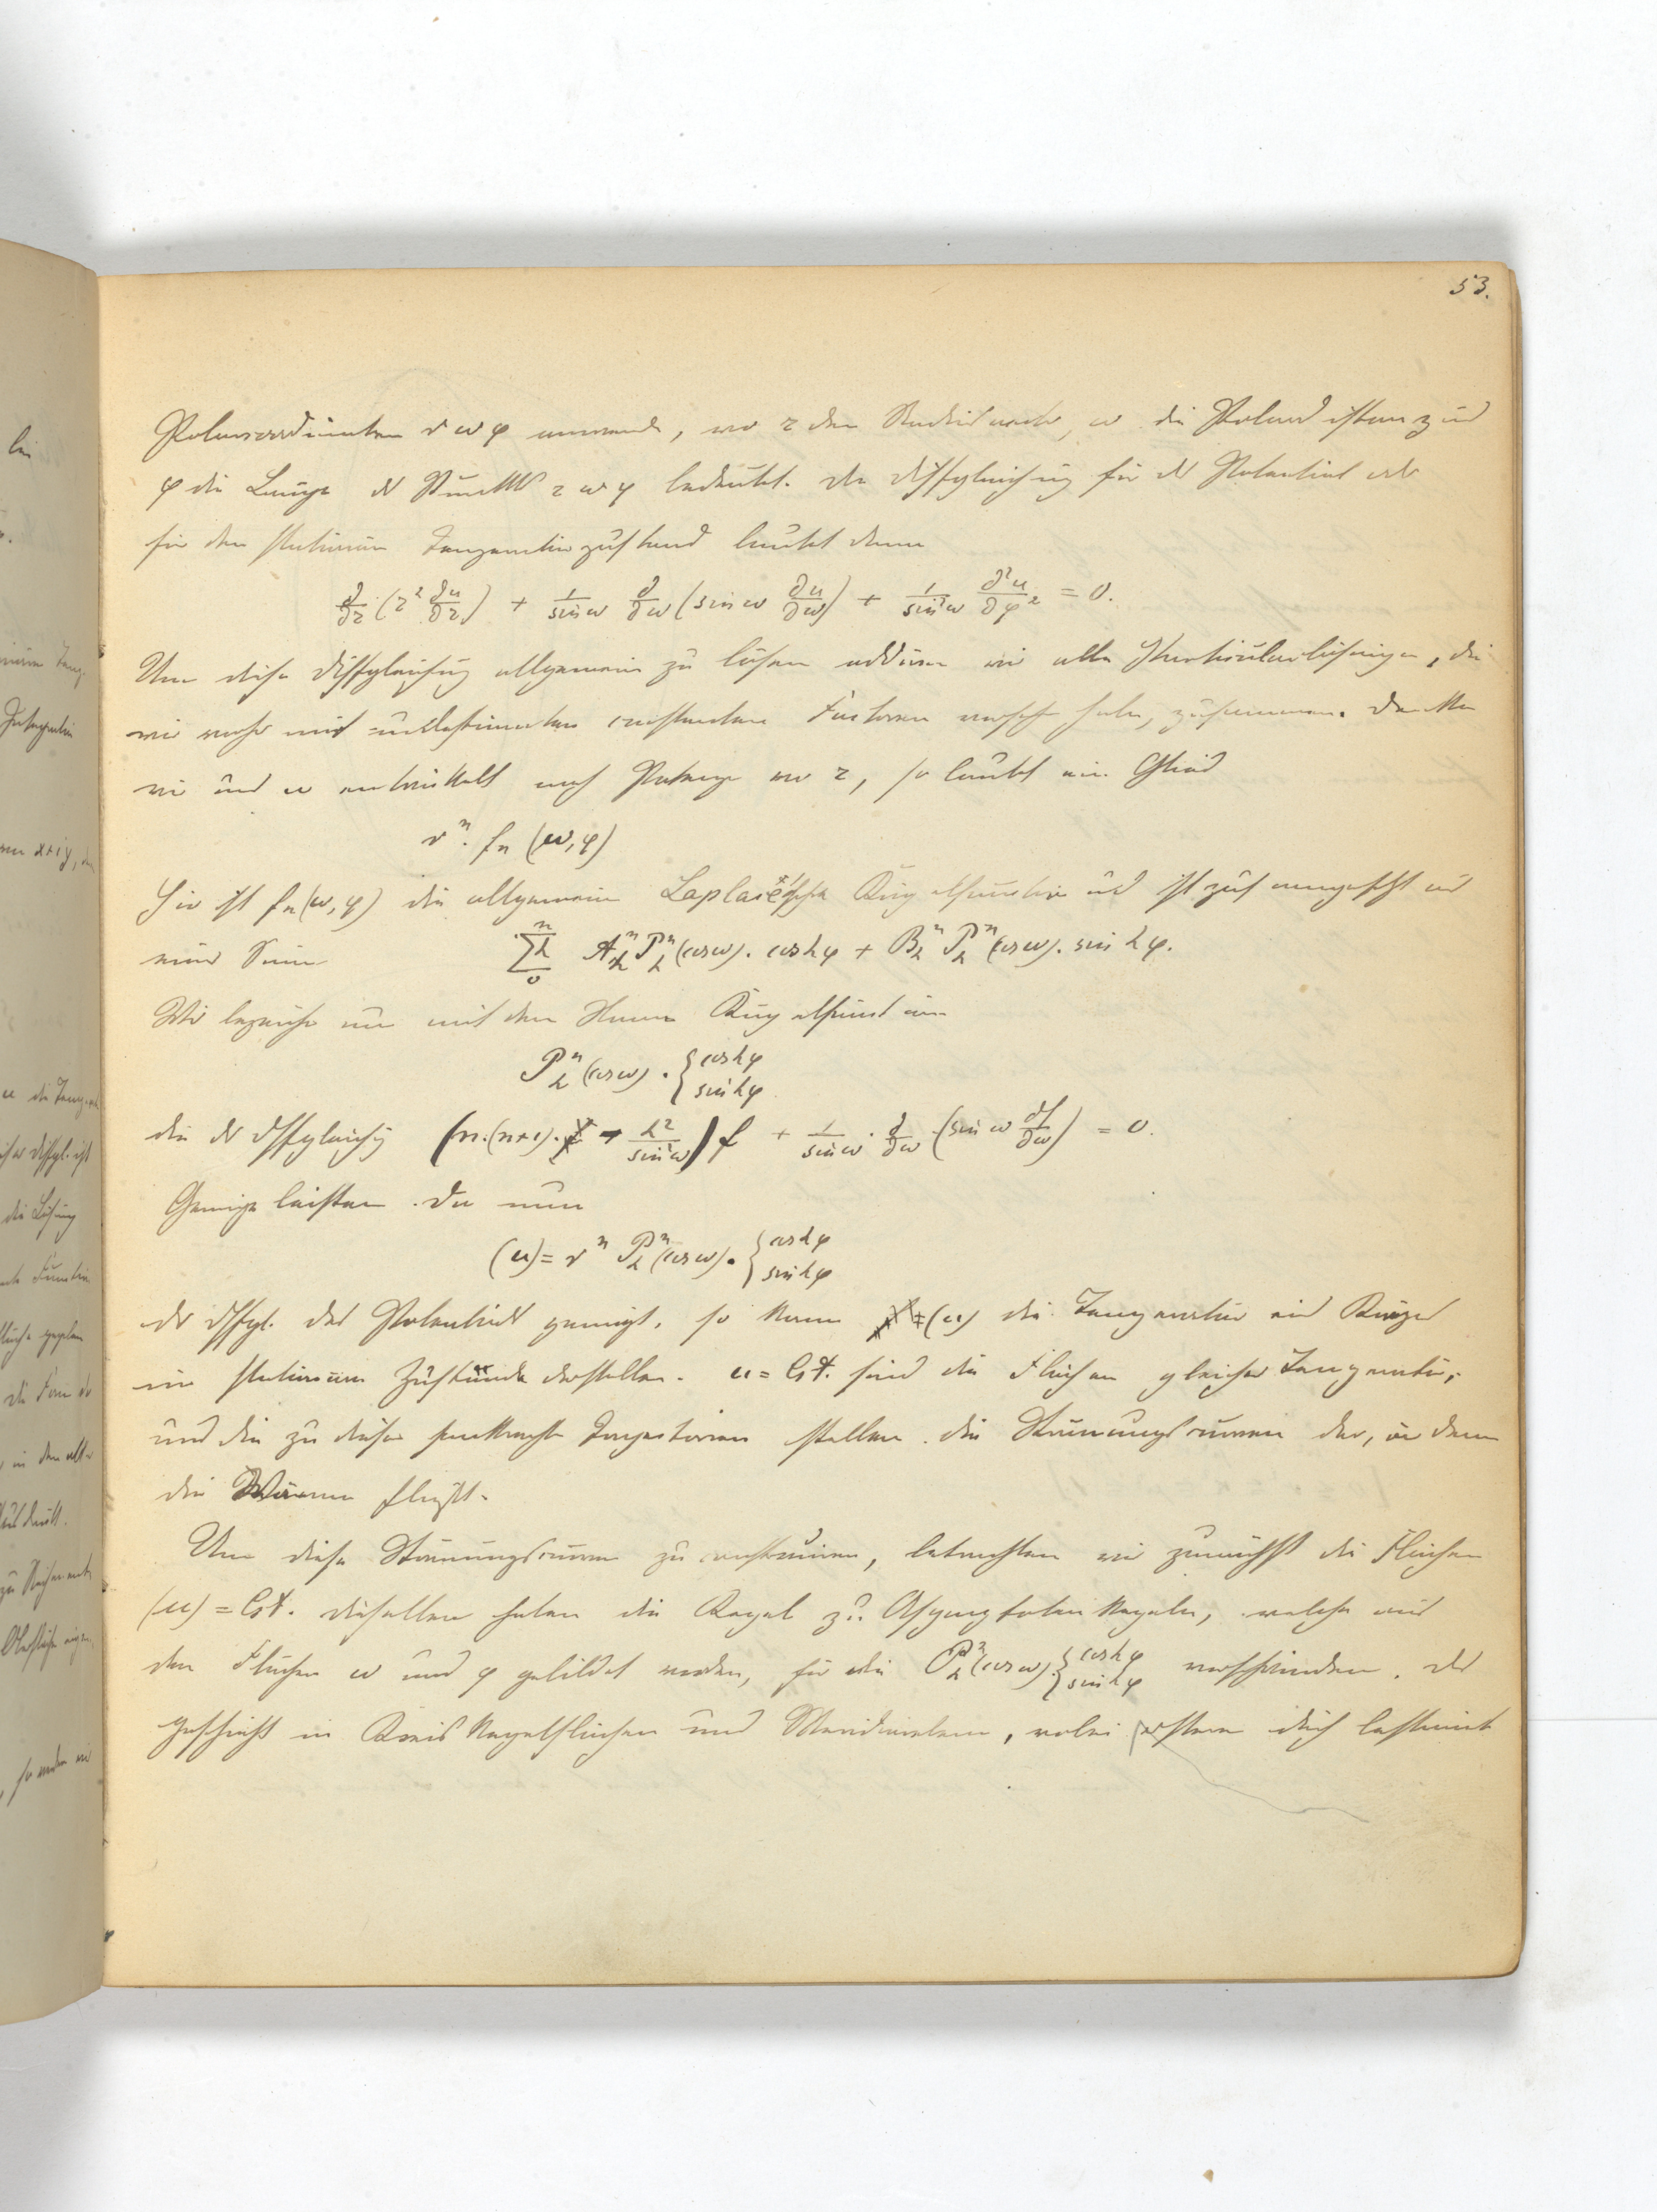 53.
Polarcoordinaten r ω φ anwende, wo r den Radius vector, ω die Polardistanz und
φ die Länge des Punktes r ω φ bedeutet. Die Diffgleichung für das Potential oder
für den stationären Temperaturzustand lautet dann
∂/∂r (r² ∂u/∂r) + 1/sin ω ∂/∂ω (sin ω ∂u/∂ω) + 1/sin²ω ∂²u/∂φ² = 0.
Um diese Diffgleichung allgemein zu lösen addiren wir alle Particularlösungen, die
wir vorher mit unbestimmten constanten Factoren versehen haben, zusammen. Denken
wir uns u entwickelt nach Potenzen von r, so lautet ein Glied
rⁿ. fₙ (ω, φ)
Hier ist fₙ(ω, φ) die allgemeine Laplace'sche Kugelfunction und ist zusammengesetzt aus
einer Summe
n ∑h 0 Aₕⁿ Pₕⁿ(cos ω). cos hφ + Bₕⁿ Pₕⁿ(cos ω). sin hφ.
Wir bezeichnen nun mit dem Namen Kugelfunction
Pₕⁿ(cos ω) · { cos hφ sin hφ
die der Dffgleichg (n.(n+1) − h²/sin²ω) f + 1/sin ω · ∂/∂ω (sin ω ∂f/∂ω) = 0.
Genüge leisten. Da nun
(u) = rⁿ Pₕⁿ(cos ω) · { cos hφ sin hφ
der Dffgl. des Potentials genügt, so kann (u) die Temperatur eines Körpers
im stationären Zustande darstellen. u = Cst. sind die Flächen gleicher Temperatur,
und die zu diesen senkrechten Trajectorien stellen die Strömungscurven dar, in denen
die Wärme fließt.
Um diese Strömungscurven zu construiren, betrachten wir zunächst die Flächen
(u) = Cst. dieselben haben die Kegel zu Asymptotenkegeln, welche aus
den Flächen ω und φ gebildet werden, für die Pₕⁿ(cos ω) · { cos hφ sin hφ verschwinden. Das
geschieht in Kreiskegelflächen und Meridianebenen, wobei erstere durch bestimmte